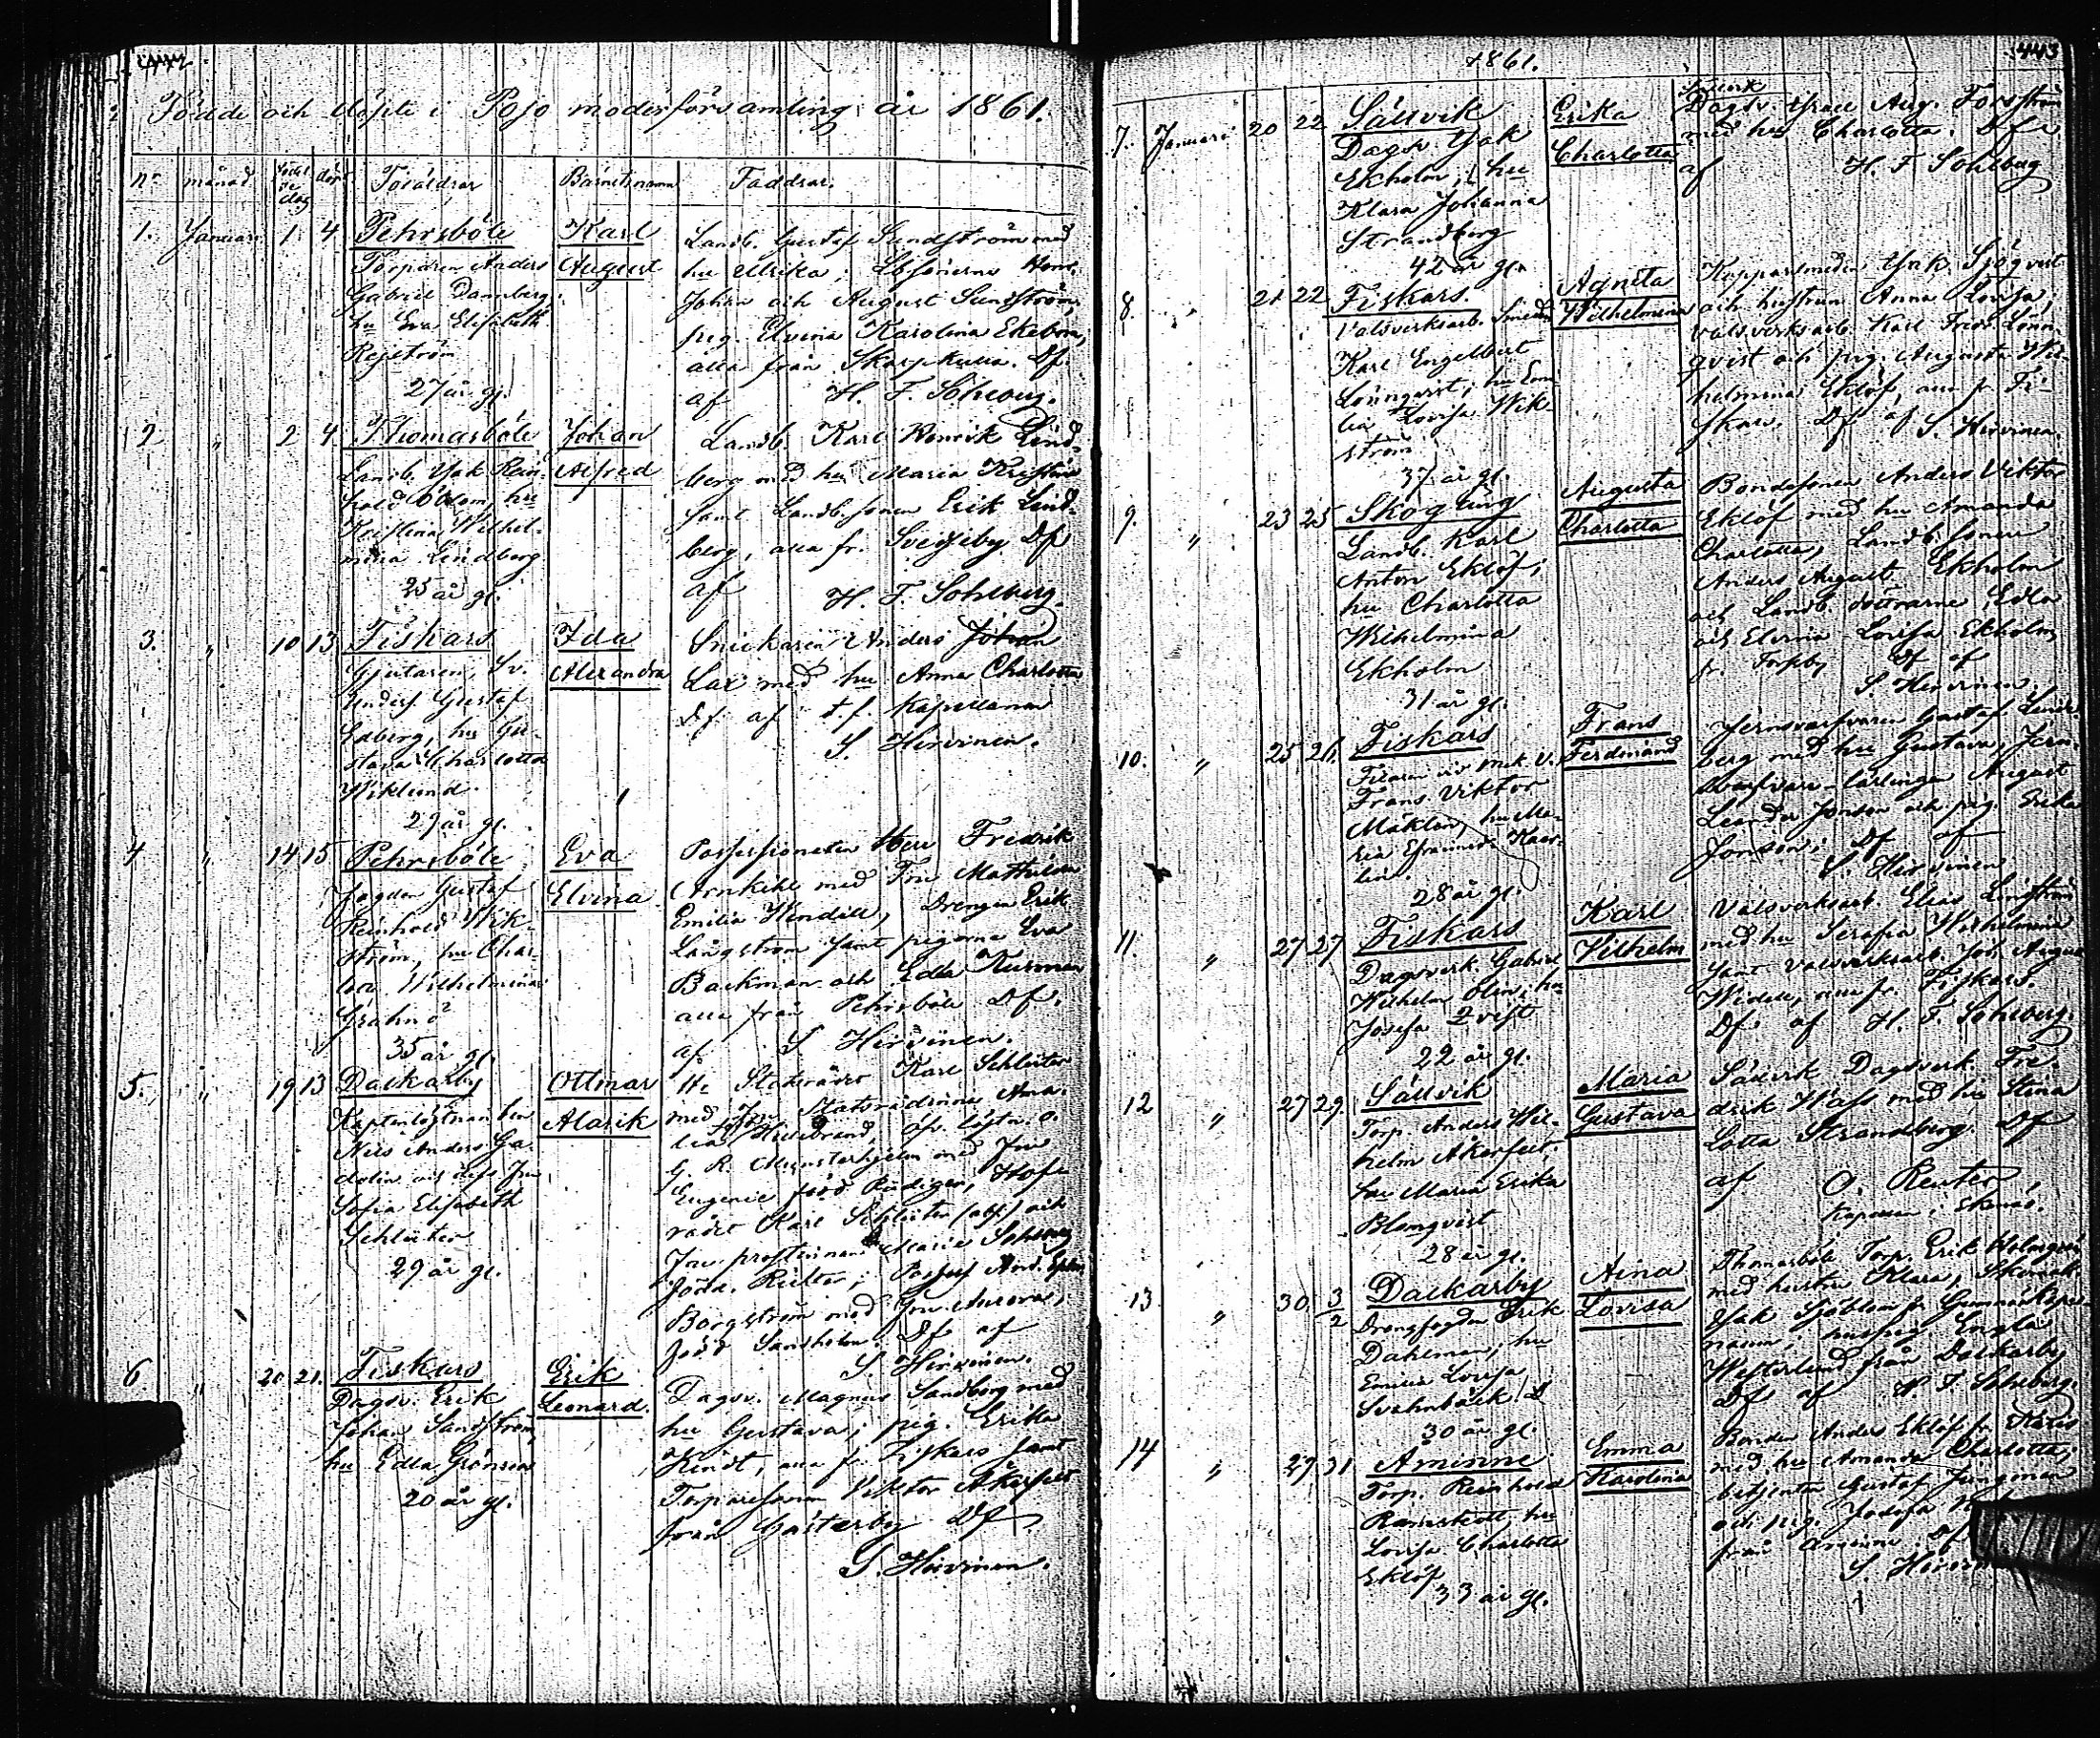 442
Födde och döpte i Pojo moderförsamling år 1861.
No månad Född de dag döpt Föräldrar Barnets namn Faddrar.
1. Januari 1 4 Pehrsböle
Torparen Anders
Gabriel Dannberg,
hu Eva Elisabeth
Rejström
27 år gl.
Karl
August
Landb. Gustaf Sundström med
hu Ulrika;
Johan och August Sundström,
pig. Elvina Karolina Ekebom,
alla från Skarpkulla. Df.
af H. F. Sohlberg.
2 " 2 4 Thomasböle
Landb. Isak Rein-
hold Blom, hu
Kristina Wilhel-
mina Lindberg
25 år gl.
Johan
Alfred
Landb. Karl Henrik Lind-
berg med hu Maria Kristina
samt Landb. sonen Erik Lind-
berg, alla fr. Svedjeby. Df
af H. F. Sohlberg.
3. " 10 13 Fiskars
Gjutaren, Sv.
Unders. Gustaf
Edberg, hu Gu-
stava Charlotta
Wiklund.
29 år gl.
Ida
Alexandra
Snickaren Anders Johan
Lax med hu Anna Charlotta
Df. af t. f. Kapellanen
S. Hirvinen.
4 " 14 15 Pehrsböle
Fogden Gustaf
Reinhold Wik-
ström, hu Char-
lott. Wilhelmina
Grahn
35 år gl.
Eva
Elvina
Possessionaten Herr Fredrik
Arnkihl med Fru Mathilda
Emilia Windell, Drengen Erik
Långström samt pigorna Eva
Backman och Edla Nurman
alla från Pehrsböle Df.
af S Hirvinen.
5. " 19 13 Dackarby
Kaptenlöjtnan herr
Nils Anders Ga-
dolin och dess Fru
Sofia Elisabeth
Schlüter
29 år gl.
Ottmar
Alarik
Hr Statsrådet Karl Schlüter
med Fru Statsrådinnan Ama-
lia Hildebrand, löjtn. O.
G. R. Munsterhjelm med Fru
Eugenie född Rüdiger, Hof-
rådet Karl Schlüter och
Fru prostinnan Marie Sohlberg
född. Richter;
Borgström med Fru Aurora,
född Sandholm. Df af
S Hirvinen.
6 " 20 21. Fiskars
Dagsv. Erik
Johan Sandström,
hu Edla Grönros
20 år gl.
Erik
Leonard.
Dagsv. Magnus Sandberg med
hu Gustava; pig. Erika
Kindt, alla fr. Fiskars samt
Torparesonen Viktor Åkerfelt
från Gästerby Df
S. Hirvinen.
1861. 443
7. Januari 20 22 Sällvik
Dagsv Isak
Ekholm, hu
Klara Johanna
Strandberg
42 år gl.
Erika
Charlotta
Dagsv Isak Aug. Forsström
med hu Charlotta. Df
af H. F Sohlberg
8. " 21 22 Fiskars.
Valsverksarb. Smeden
Karl Engelbert
Lönngvist; hu Emi-
lia Lovisa Wik-
ström
37 år gl.
Agneta
Wilhelmina
Kopparsmeden Isak Sjöqvist
och hustrun Anna Lovisa;
Valsverksarb. Karl Fredr. Lönn-
qvist och pig. Augusta Wil-
helmina Eklöf, alla fr. Fi-
skars. Df af S. Hirvinen.
9. " 23 25 Skogäng
Landb. Karl
Anton Eklöf;
hu Charlotta
Wilhelmina
Ekholm
31 år gl.
Augusta
Charlotta
Bondesonen Anders Viktor
Eklöf med hu Amanda
Charlotta, Landb. sonen
Anders August Ekholm
och Landb. döttrarne Edla
och Elvina Lovisa Ekholm
fr. Torsby Df af
S. Hirvinen.
10. " 25 26. Fiskars
Filaren vid mek. V.
Frans Viktor
Mäklin, hu Ma-
ria
28 år gl.
Frans
Ferdinand
Jernsvarfvaren Gustaf Lind-
berg med hu Gustava; Jern-
svarfvare-lärlingen August
Leander Jonson och pig. Erika
Jonson; Df af
S. Hirvinen
11. " 27 27 Fiskars
Dagsverk. Gabriel
Wilhelm Olin; hu
Josefa Qvist
22 år gl.
Karl
Vilhelm
Valsverksarb. Elias Lindström
med hu Serafia Wilhelmina
samt Valsverksarb. Joh. August
Widell, alla fr. Fiskars.
Df. af H. F. Sohlberg.
12 " 27 29. Sällvik
Torp. Anders Wil-
helm Åkerfelt.
hu Maria Erika
Blomqvist
28 år gl.
Maria
Gustava
Sällvik Dagsverk. Fre-
drik Hass med hu Stina
Lotta Strandberg. Df
af O. Renter
Kapellan i Ekenäs.
13 " 30 3/2 Dackarby
Drengfogden Erik
Dahlman, hu
Emilia Lovisa
Svahnbäck
30 år gl.
Aina
Lovisa
Thomasböle Torp. Erik Holmqvist
med hustru Klara,
Isak Sjöblom fr.
Engla
Westerlund från Dackarby
Df af H F. Sohlberg.
14 " 29 31 Åminne
Torp. Reinhold
Ramstedt, hu
Lovisa Charlotta
Eklöf
33 år gl.
Emma
Karolina
Bonden Ander Eklöf fr. Karis
med hu Amanda Charlotta,
betjenten Gustaf Jungman
och pig. Josefa
från Åminne. Df
S. Hirvin